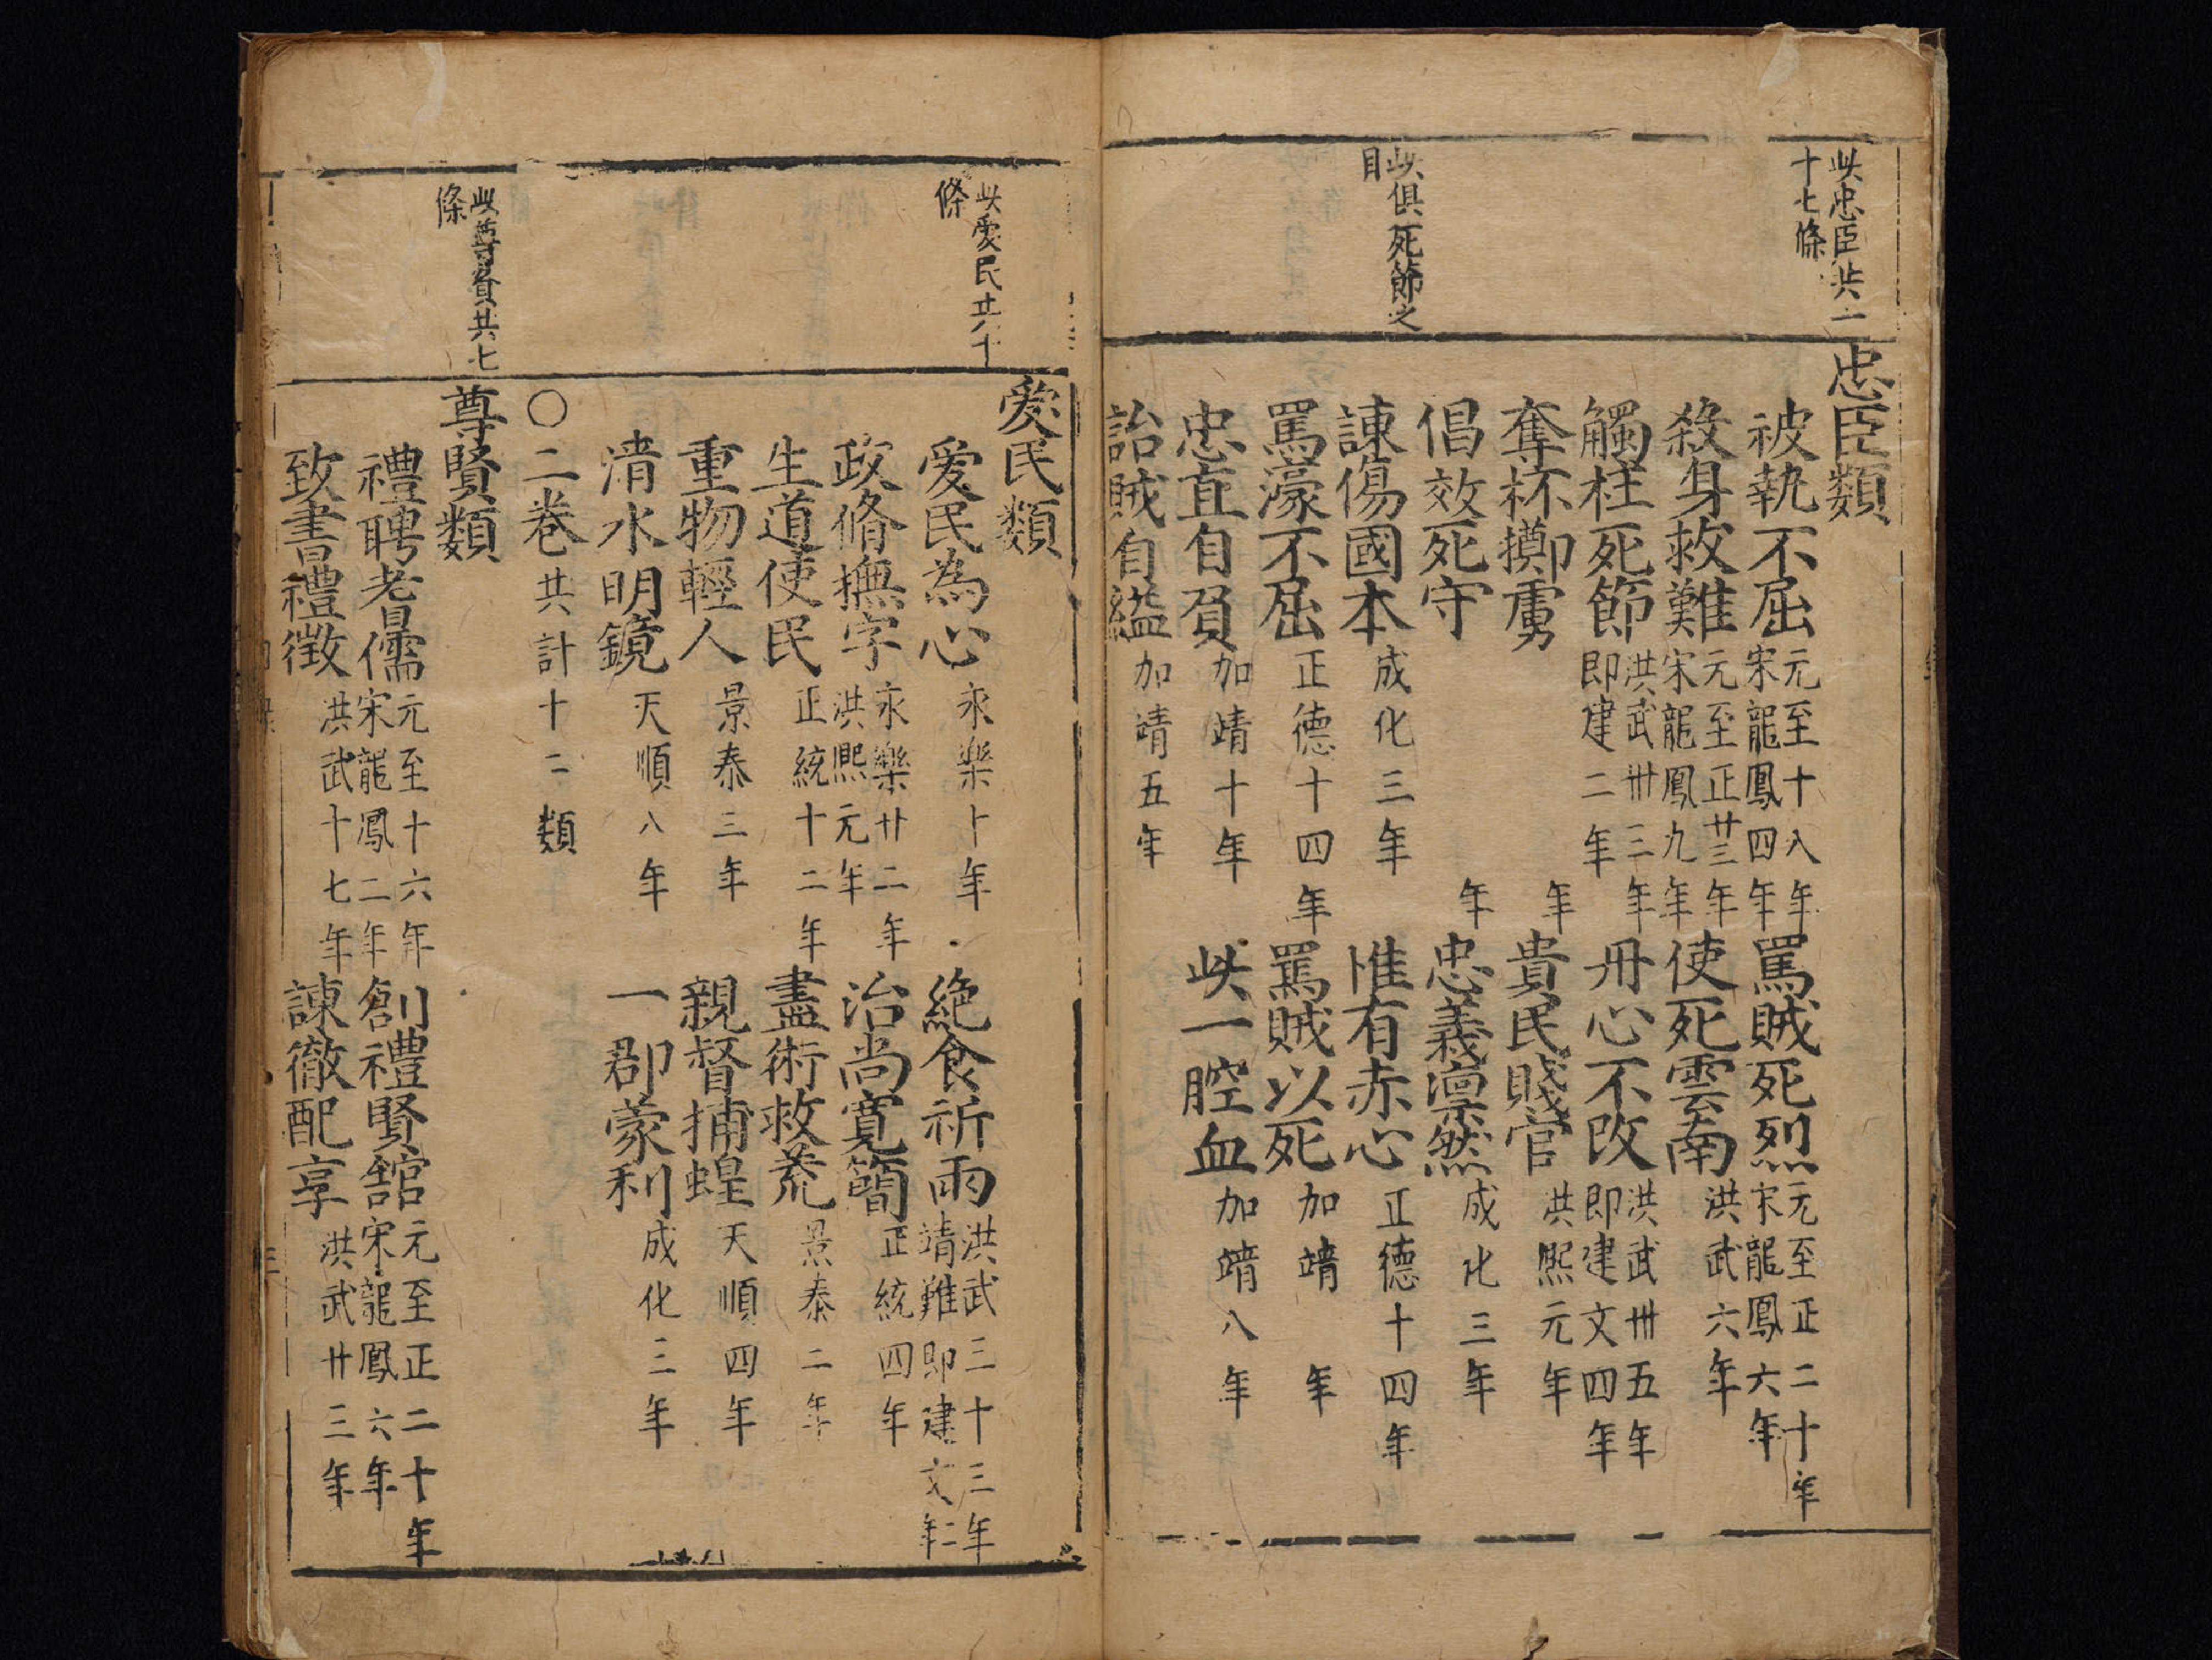 此忠臣共一
十七條
此俱死節之
目
忠臣類
被執不屈 元至十八年 宋龍鳳四年 罵賊死烈 元至正二十年 宋龍鳳六年
殺身救難 元至正廿三年 宋龍鳳九年 使死雲南 洪武六年
觸柱死節 洪武卅三年 即建二年 丹心不改 洪武卅五年 即建文四年
奪杯擲虜 年 貴民賤官 洪熙元年
倡效死守 年 忠義凛然 成化三年
諫傷國本 成化三年 惟有赤心 正德十四年
罵濠不屈 正德十四年 罵賊以死 加靖 年
忠直自負 加靖十年 此一腔血 加靖八年
詒賊自縊 加靖五年
此愛民共十
條
此尊賢共七
條
愛民類
愛民為心 永樂十年 絶食祈雨 洪武三十三年 靖難即建文二年
政脩撫字 永樂廿二年 洪熙元年 治尚寬簡 正統四年
生道使民 正統十二年 盡術救荒 景泰二年
重物輕人 景泰三年 親督捕蝗 天順四年
清水明鏡 天順八年 一郡蒙利 成化三年
〇二卷共計十二類
尊賢類
禮聘老儒 元至十六年 宋龍鳳二年 創禮賢舘 元至正二十年 宋龍鳳六年
致書禮徴 洪武十七年 諫徹配享 洪武廿三年